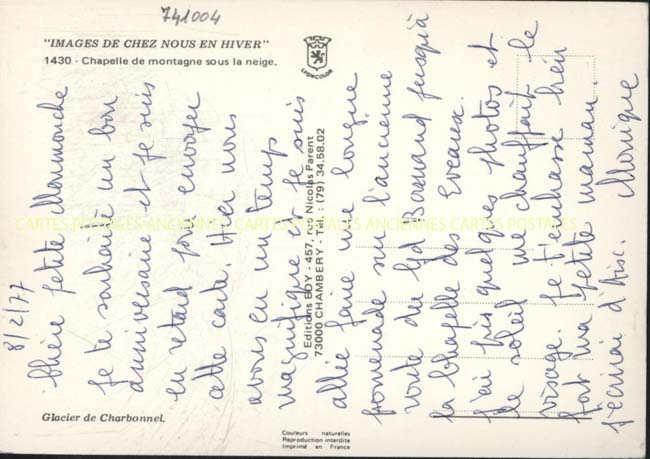 741004
"IMAGES DE CHEZ NOUS EN HIVER"
1430 - Chapelle de montagne sous la neige.
LYONCOLOR
8/2/77
Chère petite Mammouche
Je te souhaite un bon
anniversaire et je suis
en retard pour envoyer
cette carte. Hier nous
avons eu un temps
magnifique et je suis
allée faire une longue
promenade sur l'ancienne
route du Gd Bornand jusqu'à
la Chapelle des Eveaux.
J'ai pris quelques photos et
le soleil m'chauffait le
visage. Je t'embrasse bien
fort ma petite maman.
J'écrirai d'Aix. Monique
Editions EDY - 457, rue Nicolas Parent
73000 CHAMBERY - Tél. : (79) 34.58.02
CARTES POSTALES ANCIENNES CARTES POSTALES ANCIENNES CARTES POSTALES
Glacier de Charbonnel.
Couleurs naturelles
Reproduction interdite
Imprimé en France